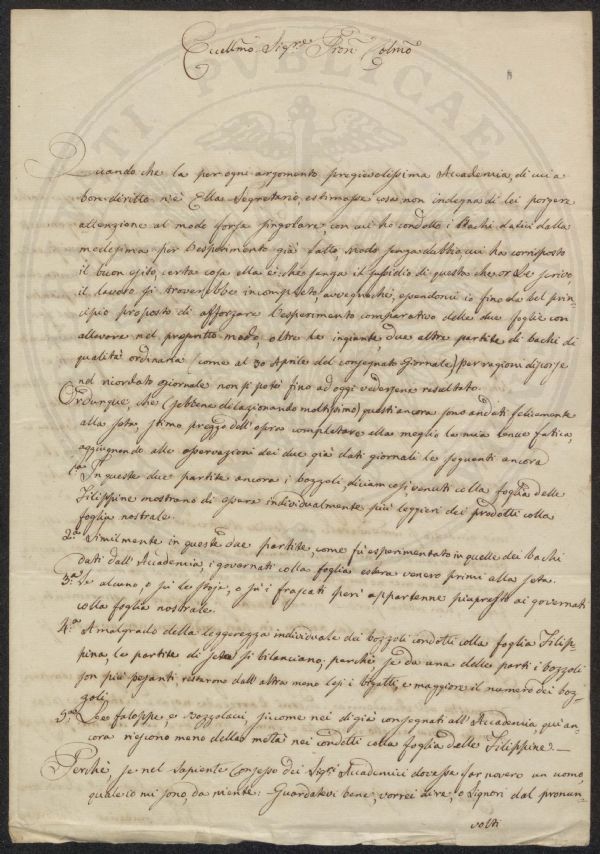 Eccellmo Sigre Pron Colmo
Quando che la per ogni argomento pregievolissima Accademia, di cui a
bon diritto n'è Ella Segretario, estimasse cosa non indegna di lei porgere
attenzione al modo forse singolare con cui ho condotto i Bachi datici dalla
medesima per l'esperimento già fatto, modo senza dubbio, cui ha corrisposto
il buon esito, certa cosa ella è, che senza il sussidio di questa che or Le scrivo,
il lavoro si troverebbe incompleto, avvegnachè, essendomi io fino da bel prin-
cipio proposto di afforzare l'esperimento comparativo delle due foglie con
allevare nel proprio modo, oltre le ingiunte due altre partite di bachi di
qualità ordinaria (come al 30 Aprile del consegnato Giornale) per ragioni esposte
nel ricordato giornale non si potè fino ad oggi vedersene resultato.
Ordunque, che (sebbene dilazionando moltissimo) questi ancora sono andati felicemente
alla seta, stimo prezzo dell'opra completare alla meglio la mia tenue fatica,
aggiungendo alle osservazioni dei due già dati giornali le seguenti ancora
1a In queste due partite ancora i bozzoli, diciam così, venuti colla foglia delle
Filippine mostrano di essere individualmente più leggieri dei prodotti colla
foglia nostrale.
2a Similmente in queste due partite, come fu esperimentato in quelle dei bachi
dati dall'Accademia, i governati colla foglia estera venero primi alla seta.
3a Se alcuno, o su le stoje, o su i frascati perì appartenne piupresto ai governati
colla foglia nostrale.
4a A malgrado della leggerezza individuale dei bozzoli condotti colla foglia Filip-
pina, le partite di seta si bilanciano; perchè, se da una delle parti i bozzoli
son più pesanti restarono dall'altra meno lesi i bigatti, e maggiore il numero dei boz-
zoli.
5a Le faloppe, e bozzolacci, siccome nei di già consegnati all'Accademia, qui an-
cora riescono meno della metà nei condotti colla foglia delle Filippine. —
Perchè, se nel sapiente Consesso dei Sigri Accademici dovesse far novero un uomo,
quale io mi sono, da niente: Guardatevi bene, vorrei dire, o Signori dal pronun-
volti
PUBLICAE